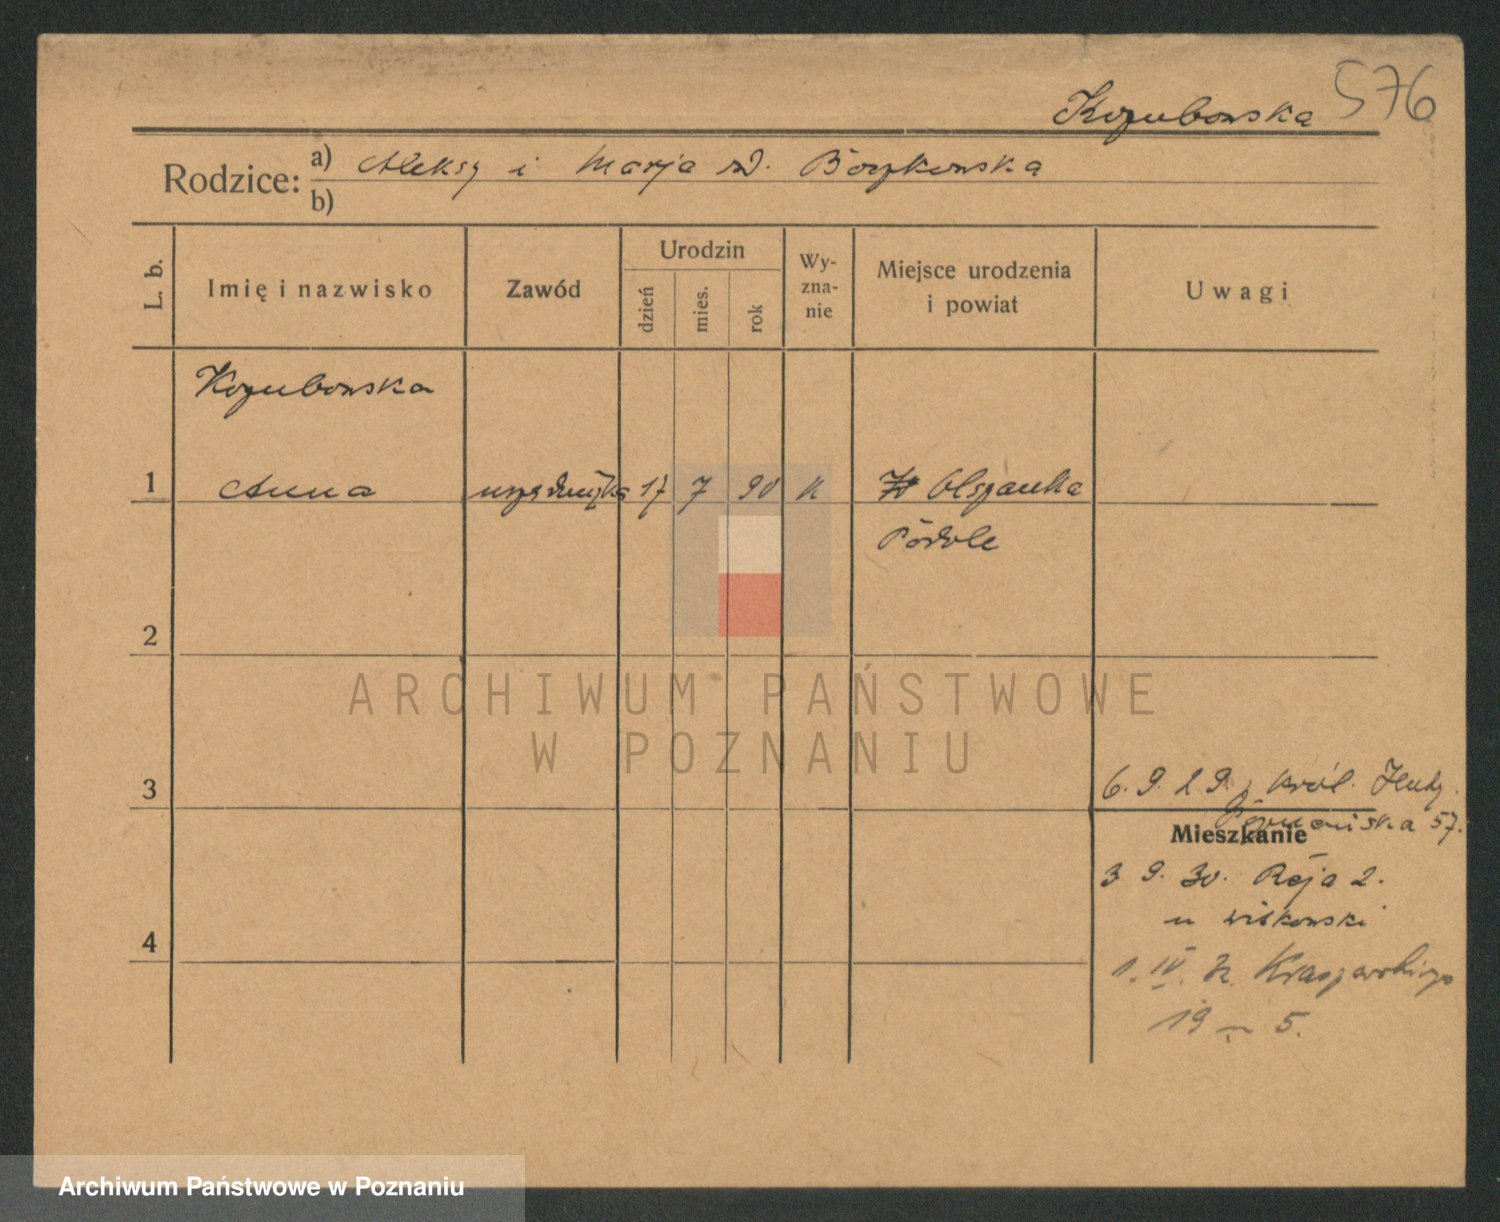 Kozubowska 576
Rodzice: a) Aleksy i Marja
b)
L. b. Imię i nazwisko Zawód Urodzin dzień mies. rok Wy-zna-nie Miejsce urodzenia i powiat Uwagi
Kozubowska
1 Anna urzędniczka 17 7 90 k Olszanka
Podole
2
ARCHIWUM PAŃSTWOWE
W POZNANIU
3 6. 9. 29. z Król. Huty.
57.
Mieszkanie
3 9. 30. Reja 2.
u Witkowski
4
1. IV. Kraszewskiego
19 — 5.
Archiwum Państwowe w Poznaniu